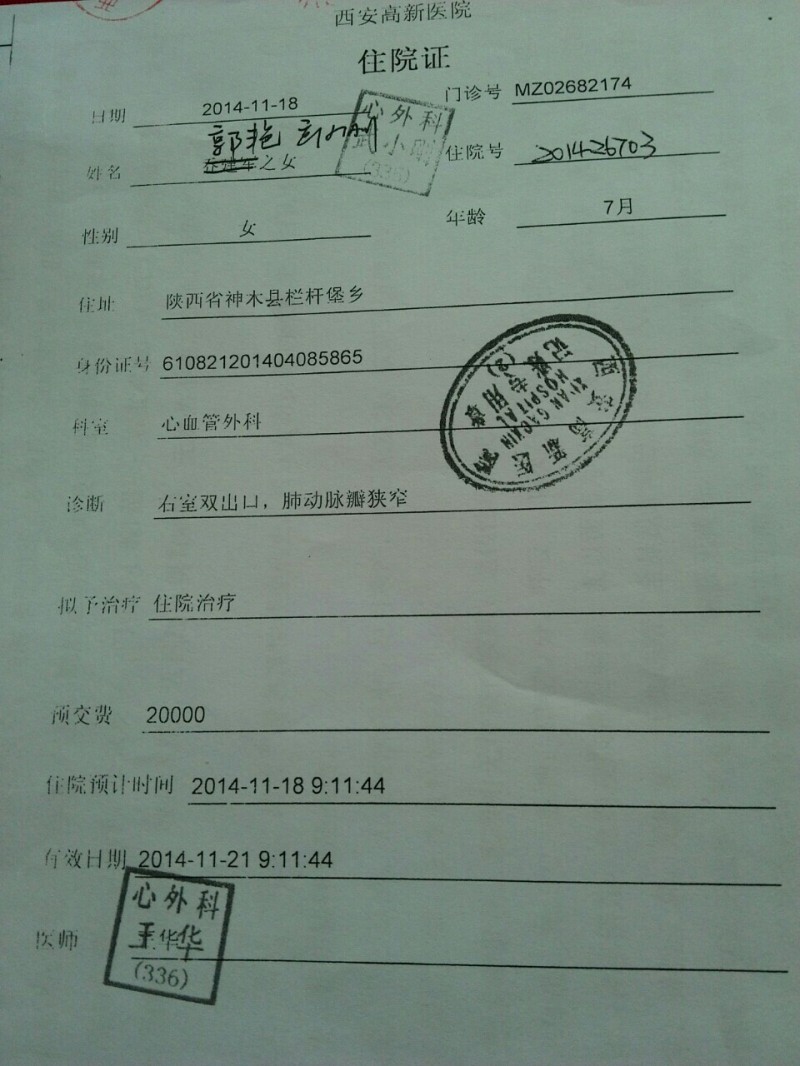 西安高新医院
住院证
日期 2014-11-18 门诊号 MZ02682174
心外科
武小刚
(336)
郭艳
姓名 之女 住院号 201426703
性别 女 年龄 7月
住址 陕西省神木县栏杆堡乡
身份证号 610821201404085865
西安高新医院
XI'AN GAOXIN HOSPITAL
记账专用章
(2)
科室 心血管外科
诊断 右室双出口，肺动脉瓣狭窄
拟予治疗 住院治疗
预交费 20000
住院预计时间 2014-11-18 9:11:44
有效日期 2014-11-21 9:11:44
心外科
医师 王华华
(336)